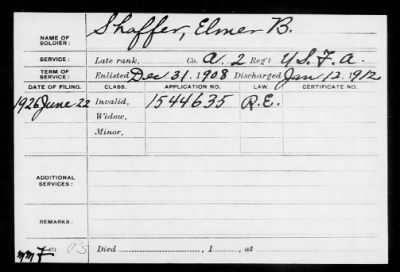 NAME OF SOLDIER: Shaffer, Elmer B.
SERVICE: Late rank, Co. A. 2 Reg't U.S.F.A.
TERM OF SERVICE: Enlisted Dec 31. 1908 Discharged Jan 12. 1912
DATE OF FILING. CLASS. APPLICATION NO. LAW. CERTIFICATE NO.
1926 June 22 Invalid, 1544635 R.E.
Widow,
Minor,
ADDITIONAL SERVICES:
REMARKS:
Died , 1 , at